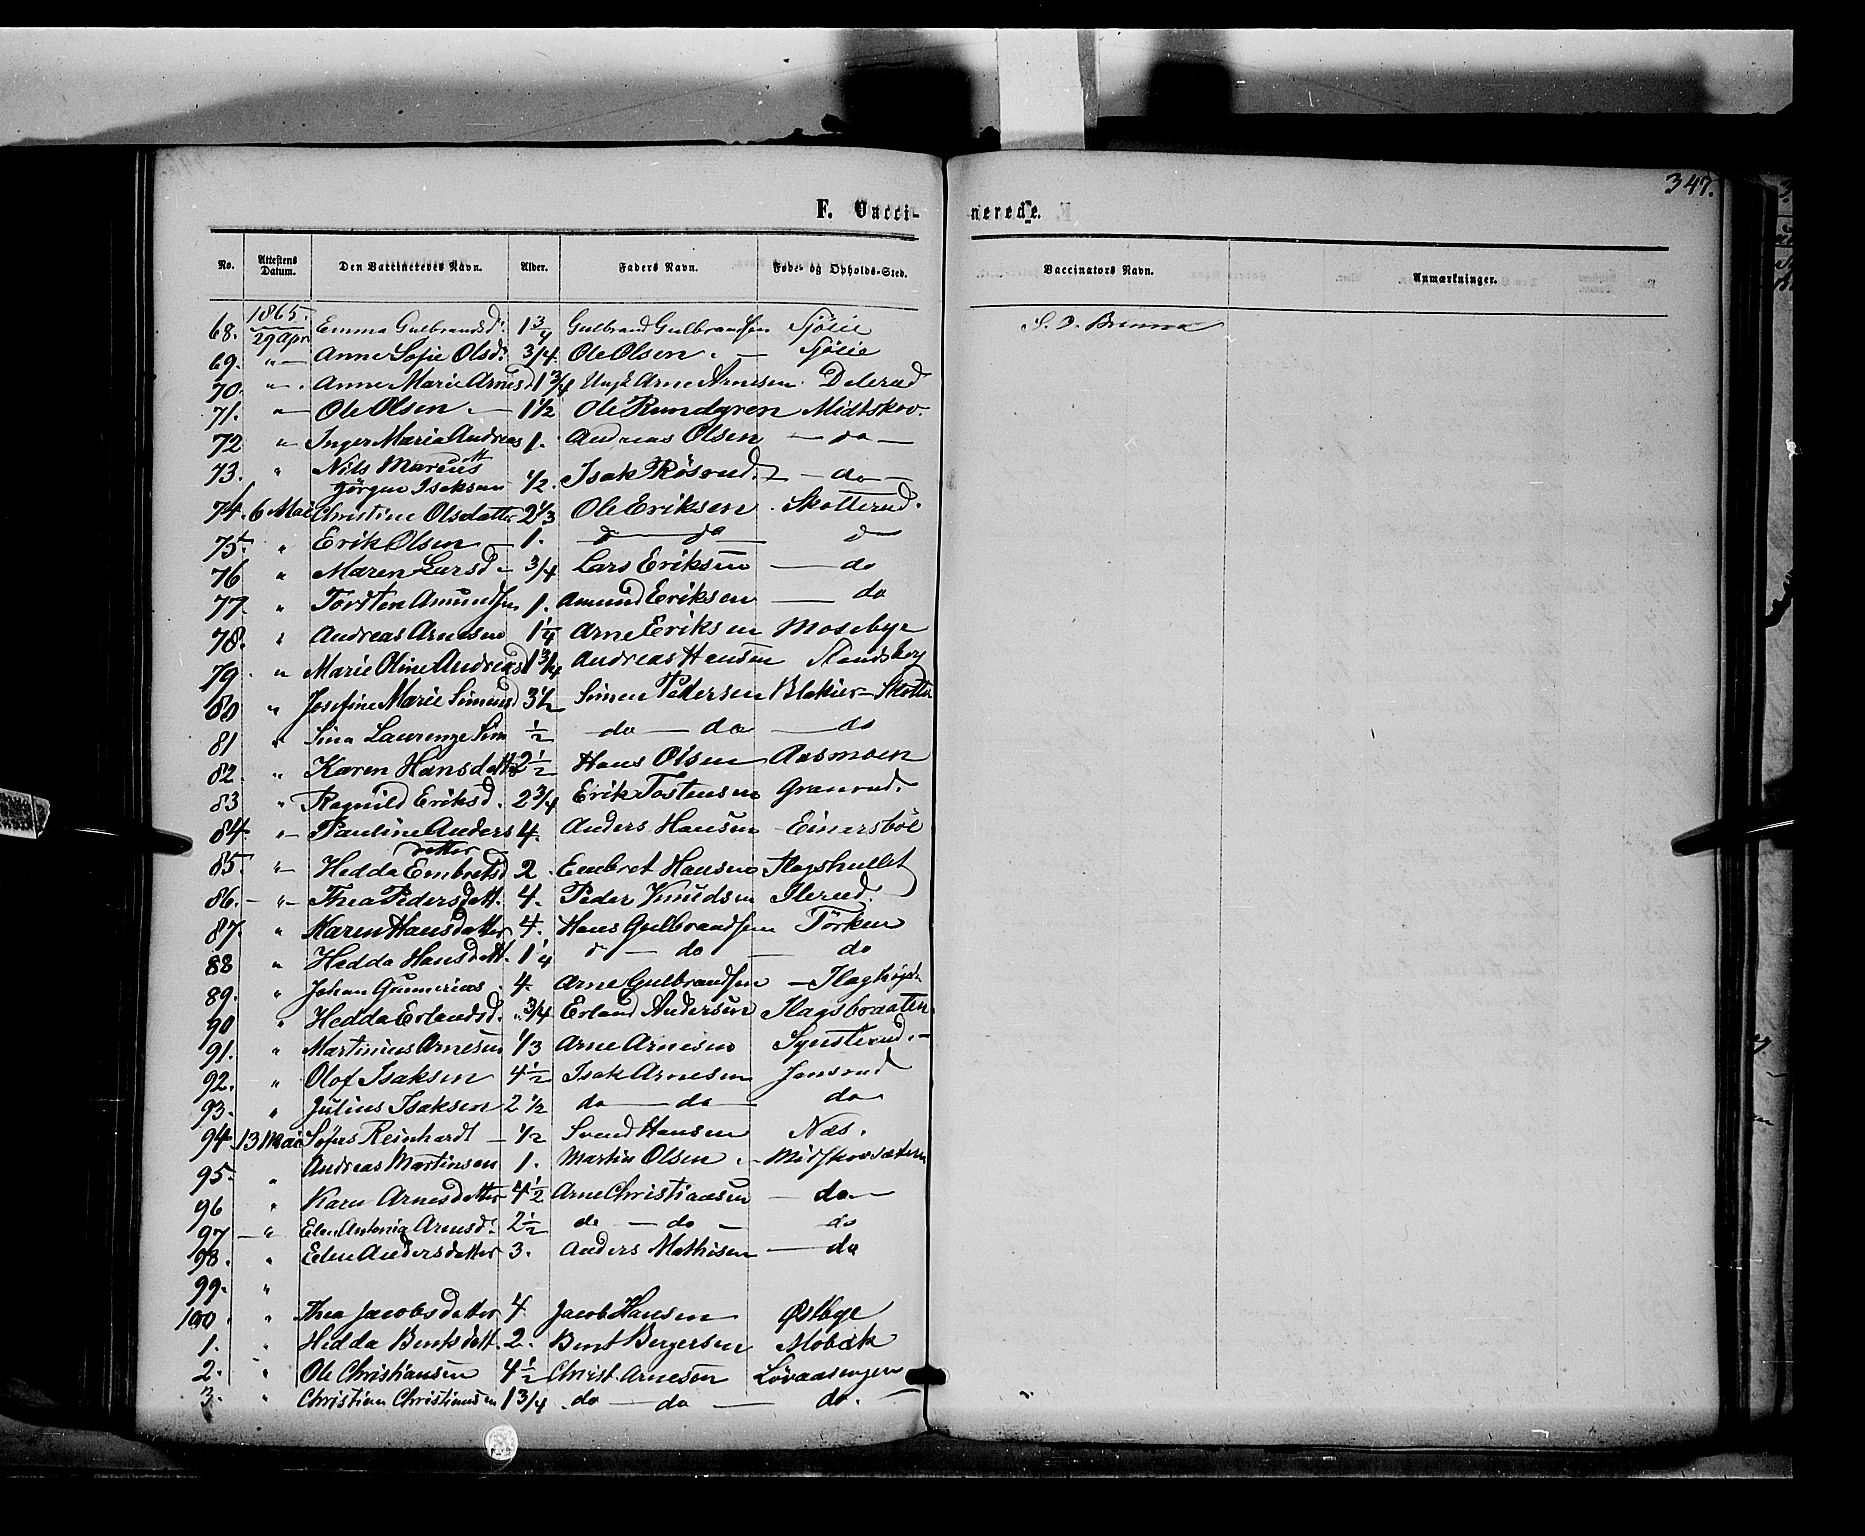 347.
F. Vacci-
nerede.
No. Attestens Datum. Den Vaccineredes Navn. Alder. Faders Navn. Føde- og Opholds-Sted. Vaccinators Navn. Anmærkninger.
1865.
68. 29 Apr. Emma Gulbrandsd. 1 3/4 Gulbrand Gulbrandsen Sjölie S. O. Brenna
69. " — Anne Sofie Olsd. 3/4. Ole Olsen. — Sjölie
70. " . Anne Marie Arnesd 1 3/4 Ungk Arne Arnesen. Delerud
71. " Ole Olsen. — 1 1/2 Ole Rundgren Midtskov.
72 " Inger Maria Andreas 1. Andreas Olsen — do —
dtt
73. " Nils Marcus
Jörgen Isaksen 1/2. Isak Rösrud. — do —
74. 6 Mai Christine Olsdatter 2 1/3 Ole Eriksen. Skotterud.
75. " Erik Olsen — 1. d — do — d
76 " Maren Larsd — 3/4 Lars Eriksen — do
77. " Torsten Amundsen 1. Amund Eriksen — do
78. " Andreas Arnesen 1 1/4 Arne Eriksen Mosebye
79. " Marie Oline Andreasd 1 3/4 Andreas Hansen
80 " Josefine Marie Simensd 3 1/2 Simen Pedersen Blekier-Skotte
81 " Sina Laurenze Sim 1/2 do — do — do
82. " Karen Hansdatter 2 1/2 Hans Olsen Aasmoen
83 " Ragnild Eriksd. 2 3/4 Erik Tostensen Granrud.
84. " Pauline Anders 4. Anders Hansen Einersböl
datter
85. " Hedda Embretsd 2. Embret Hansen Flagshullet
86. — " — Thea Pedersdtt. 4. Peder Knudsen Ilerud.
87. " Maren Hansdatter 4. Hans Gulbrandsen Törken
88 " Hedda Hansdtt. 1 1/4 d — do — do
89. " Johan Gunnerius 4. Arne Gulbrandsen —
90 " Hedda Erlandsd. 3/4 Erland Andersen Flagsbraaten
91. " Martinius Arnesen 1/3 Arne Arnesen Synsterud. —
92. " Olof Isaksen 4 1/2 Isak Arnesen Jansrud
93. " Julius Isaksen 2 1/2 do — do — do
94. 13 Mai Sofus Reinhardt — 1/2 Svend Hansen Næs.
95. " Andreas Martinsen 1. Martin Olsen. — Midskovsætern
96 " Karen Arnesdatter 4 1/2 Arne Christiansen — do —
97 — " Elen Antonia Arnesd. 2 1/2 do — do — do
98. " Elen Andersdatter 3. Anders Mathisen — do
99. "
100. " Thea Jacobsdatter 4 Jacob Hansen Østbye
1. " Hedda Bentsdtt. 2. Bent Bergersen Mobæk
2. " Ole Christiansen 4 1/2 Christ. Arnesen Lövaasengen
3. " Christian Christiansen 1 3/4 . do — do — do. —